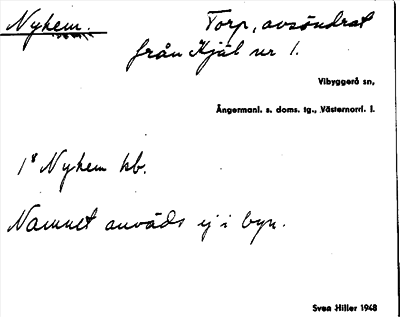 Nyhem. Torp, avsöndrat
från Kjäl nr 1.
Vibyggerå sn,
Ångermanl. s. doms. tg., Västernorrl. l.
1⁸ Nyhem kb.
Namnet används ej i byn.
Sven Hiller 1948